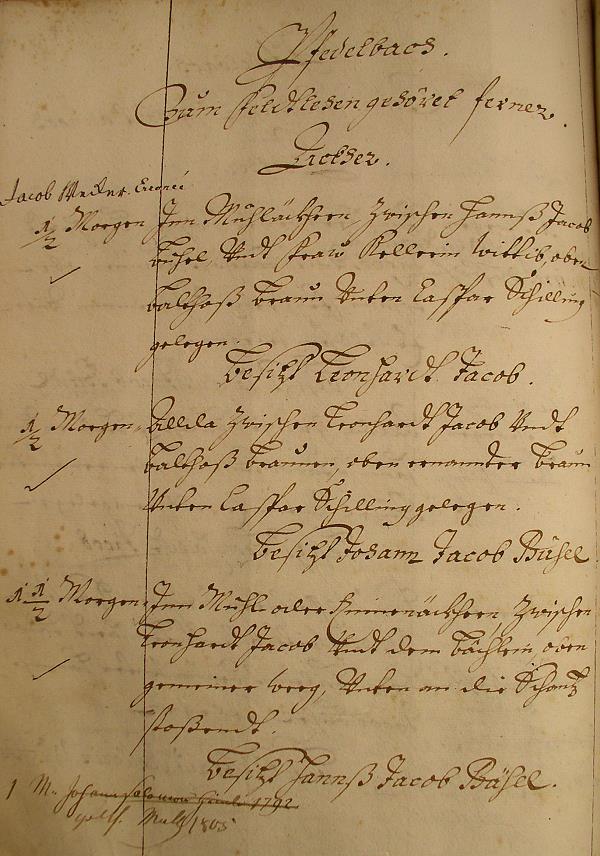 Pfedelbach.
Zum Feldtlehen gehöret ferner.
Äckher.
Jacob Wecker
1/2 Morgen Inn Mühläckhern, Zwischen Hannß Jacob
Büsel Undt Fraw Kellerin Wittib, oben
Balthaß Braun Unten Caspar Schilling
gelegen.
Besitzt Leonhardt Jacob.
1/2 Morgen, Allda Zwischen Leonhardt Jacob Undt
Balthaß Braunen, oben ernannter Braun
Unten Caspar Schilling gelegen.
Besitzt Johann Jacob Büsel
1 1/2 Morgen, Inn Mühl oder Zwischen
Leonhardt Jacob Undt dem Bächlein, oben
gemeiner weeg, Unten an die Schantz
stoßendt.
Besitzt Hannß Jacob Büsel.
1 M. Johann Salomon 1792
1805